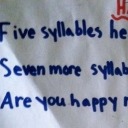 Five syllables he
Seven more syllab
Are you happy